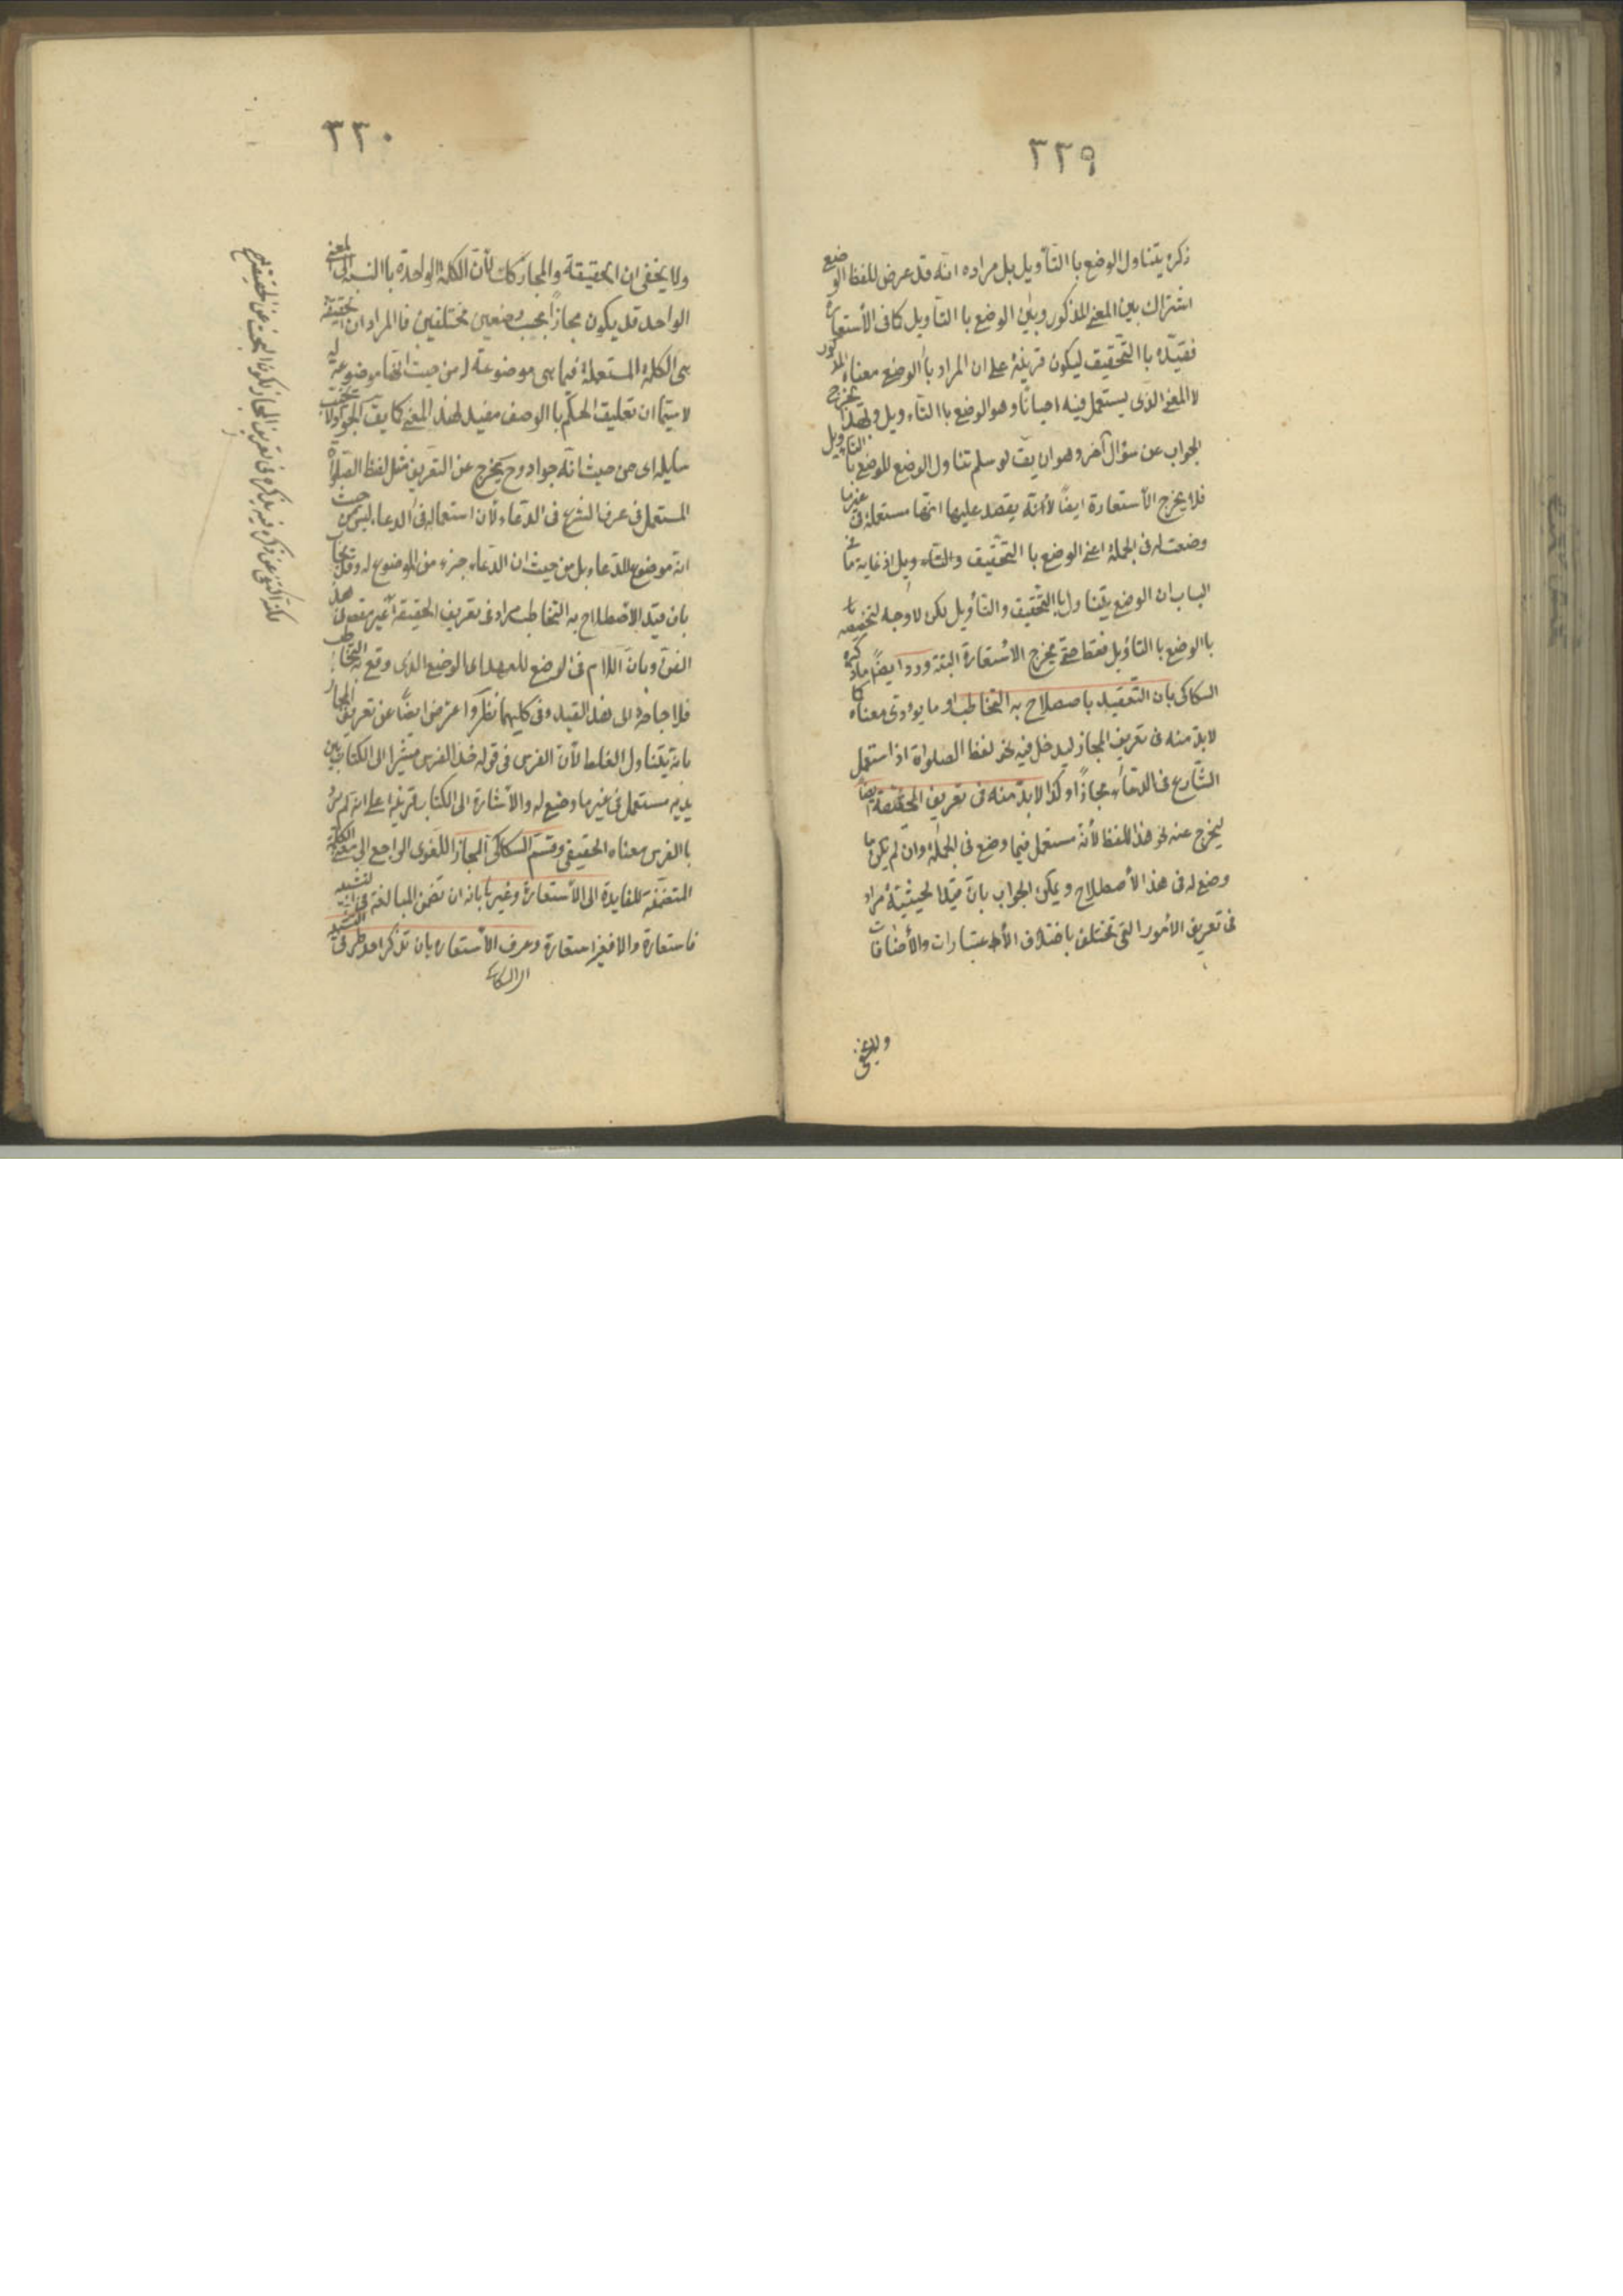 ٣٢٩
ذكره يتناول الوضع باالتأويل بل مراده انه قد عرض للفظ الوضع
اشتراك بين المعنى المذكور وبين الوضع باالتأويل كما فى الأستعارة
فقيّده باالتحقيق ليكون قرينة على ان المراد باالوضع معناه المذكور
لا المعنى الذى يستعمل فيه احيانًا وهو الوضع باالتاءويل وبهذا يخرج
الجواب عن سؤال آخر وهو ان يق لو سلم تناول الوضع للوضع باالتاءويل
فلا يخرج الأستعارة ايضًا لأنّه يصدق عليها انها مستعملة فى غير ما
وضعت له فى الجملة اعنى الوضع باالتحقيق والتاءويل اذ غاية ما فى
الباب ان الوضع يتناول باالتحقيق والتأويل لكن لا وجه لتخصيصه
باالوضع باالتاءويل فقط حتى يخرج الاستعارة البتة وردّ ايضًا ما ذكره
السكاكى بان التقييد باصطلاح به التخاطب او ما يودى معناه كما
لابد منه فى تعريف المجاز ليدخل فيه نحو لفظ الصلواة اذا استعمل
الشّارع فى الدعاء مجازًا وكذا لابد منه فى تعريف الحقيقة ايضًا
ليخرج عنه نحو هذا اللفظ لأنه مستعمل فيما وضع فى الجملة وان لم يكن ما
وضع له فى هذا الأصطلاح ويمكن الجواب بان قيد الحيثية مراد
فى تعريف الأمور التى تختلف باختلاف الأعتبارات والأضافات
ولا يخفى
٣٣٠
ولا يخفى ان الحقيقة والمجاز كك لأن الكلمة الواحدة باالنسبة الى المعنى
الواحد قد يكون مجازًا بحسب وضعين مختلفين فاالمراد ان الحقيقة
هى الكلمة المستعملة فيما هى موضوعة له من حيث انها موضوعة له
لا سيّما ان تعليق الحكم باالوصف مفيد لهذا المعنى كما يق الجواد لا يخيب
سايله اى من حيث انه جواد وح يخرج عن التعريف مثل لفظ الصلواة
المستعمل فى عرف الشرع فى الدعاء لأن استعماله فى الدعاء ليس من حيث
انه موضوع للدعاء بل من حيث ان الدعاء جزء من الموضوع له وقد يجاب
بان قيد الأصطلاح به التخاطب مراد فى تعريف الحقيقة
الفن وبان اللام فى الوضع للعهد اى الوضع الذى وقع به التخاطب
فلا حاجة الى هذا القيد وفى كليهما نظر واعترض ايضًا على تعريف المجاز
بانه يتناول الغلط لأن الفرس فى قوله خذ الفرس مشيرا الى الكتاب بين
يديه مستعمل فى غير ما وضع له والأشارة الى الكتاب قرينة على انه لم يرد
باالفرس معناه الحقيقى وقسم السكاكى المجاز اللغوى الراجع الى معنى الكلمة
المتضمّنة للفايدة الى الأستعارة وغيرها بانه ان تضمن المبالغة فى التشبيه
فاستعارة والا فغير استعارة وعرف الأستعاره بان تذكر احد طرفى التشبيه